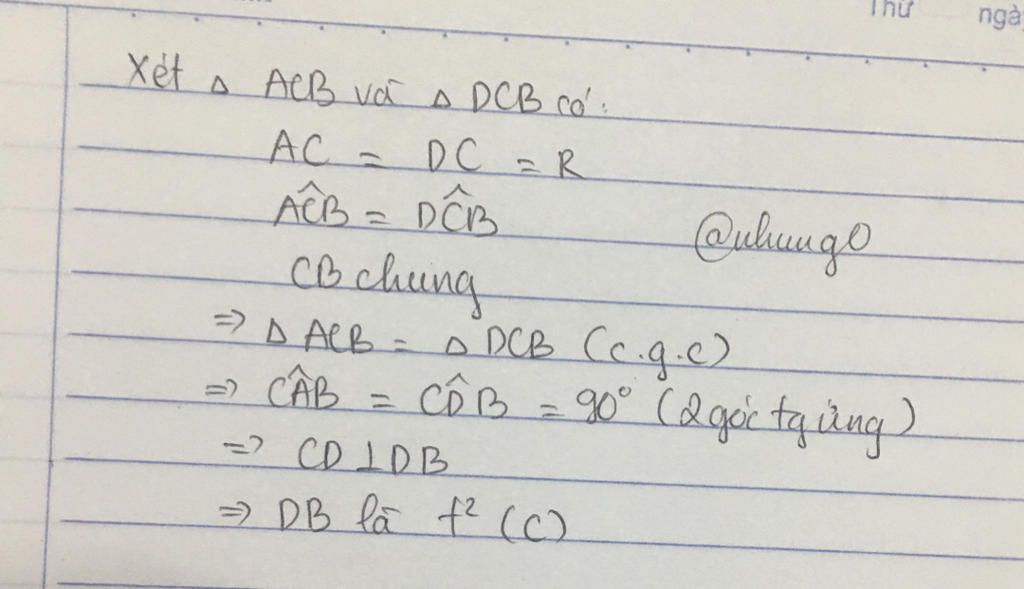 Thứ ngày
Xét △ ACB và △ DCB có:
AC = DC = R
AĈB = DĈB
@nhung0
CB chung
=> △ ACB = △ DCB (c.g.c)
=> CÂB = CD̂B = 90° (2 góc tg ứng)
=> CD ⊥ DB
=> DB là t² (C)